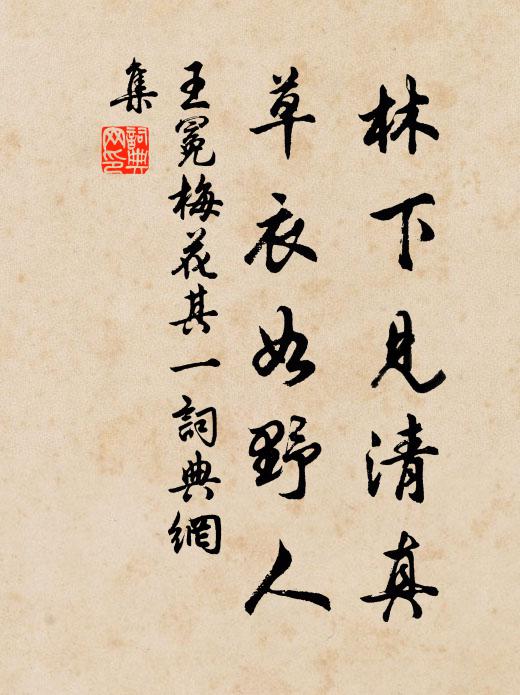 林下見清真
草衣如野人
王冕梅花其一詞典網
集
詞典
网印